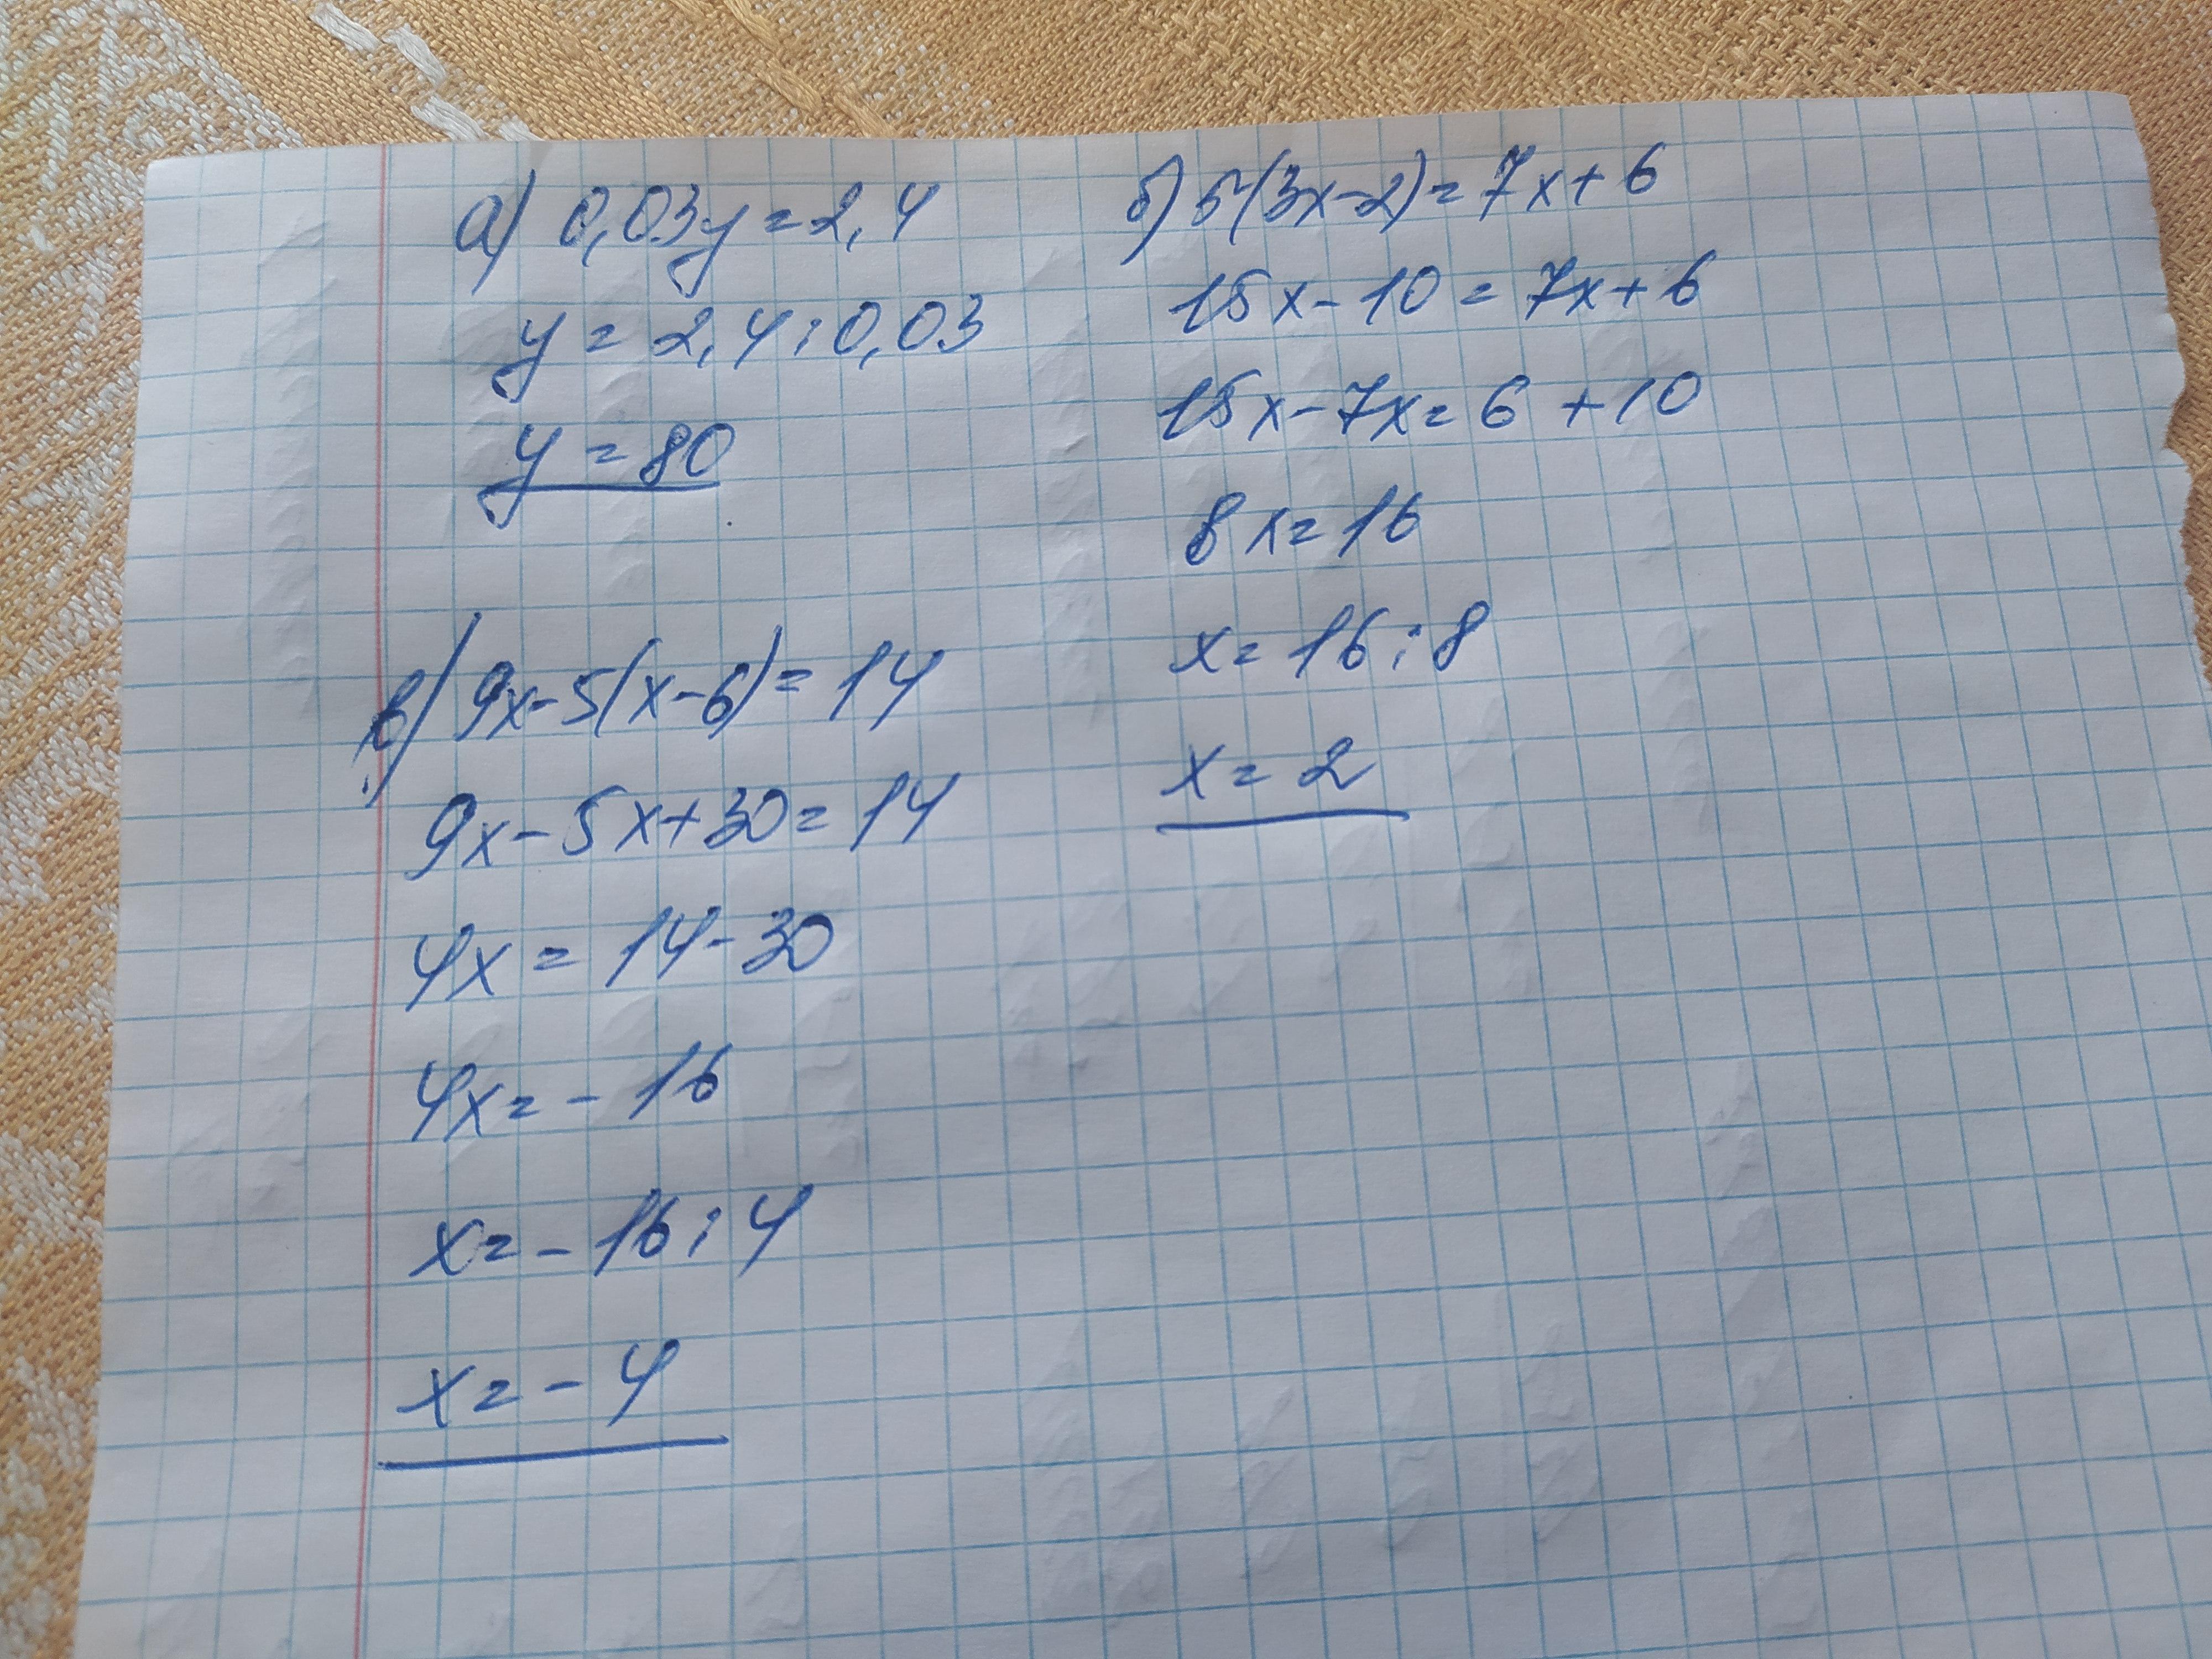 а) 0,03y=2,4
y=2,4:0,03
y=80
б) 5(3x-2)=7x+6
15x-10=7x+6
15x-7x=6+10
8x=16
x=16:8
x=2
в) 9x-5(x-6)=14
9x-5x+30=14
4x=14-30
4x=-16
x=-16:4
x=-4